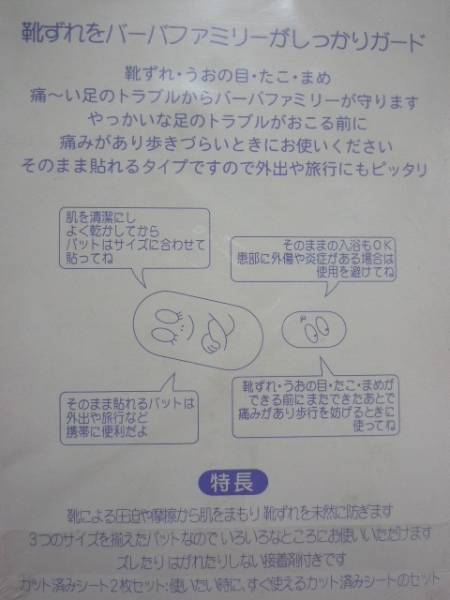 靴ずれをバーバファミリーがしっかりガード
靴ずれ・うおの目・たこ・まめ
痛〜い足のトラブルからバーバファミリーが守ります
やっかいな足のトラブルがおこる前に
痛みがあり歩きづらいときにお使いください
そのまま貼れるタイプですので外出や旅行にもピッタリ
肌を清潔にし
よく乾かしてから
パットはサイズに合わせて
貼ってね
そのままの入浴もOK
患部に外傷や炎症がある場合は
使用を避けてね
そのまま貼れるパットは
外出や旅行など
携帯に便利だよ
靴ずれ・うおの目・たこ・まめが
できる前にまたできたあとで
痛みがあり歩行を妨げるときに
使ってね
特長
靴による圧迫や摩擦から肌をまもり靴ずれを未然に防ぎます
3つのサイズを揃えたパットなのでいろいろなところにお使いいただけます
ズレたりはがれたりしない接着剤付きです
カット済みシート2枚セット:使いたい時に、すぐ使えるカット済みシートのセット